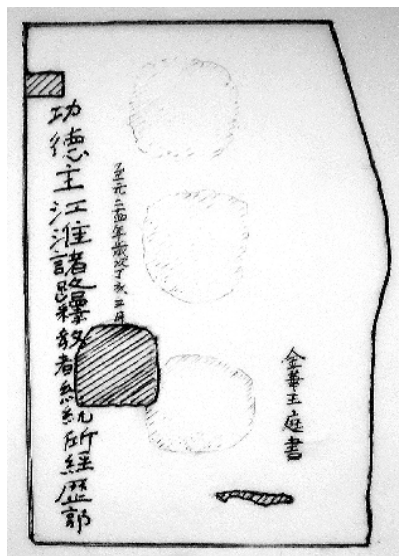 金華王庭書
至元二十四年歲次丁亥三月
功德主江淮諸路釋教都總統所經歷郭